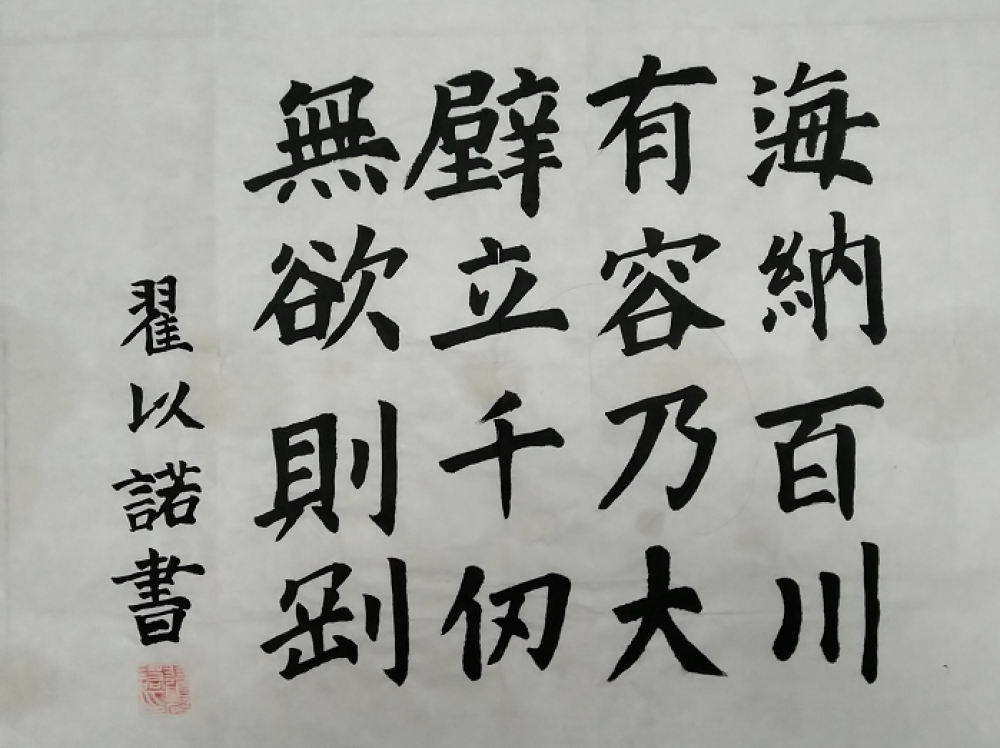 海納百川
有容乃大
壁立千仞
無欲則剛
翟以諾書